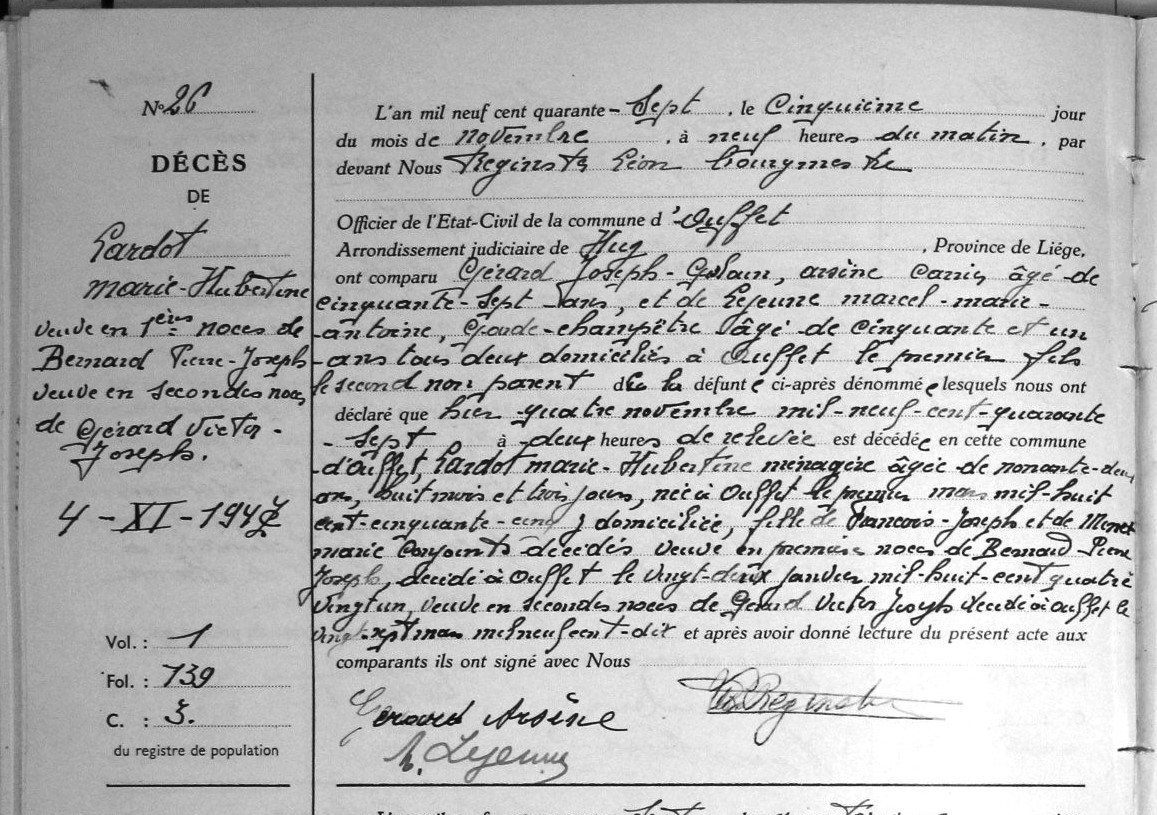 N° 26
DÉCÈS
DE
Lardot
marie-Hubertine
veuve en 1ères noces de
Bernard Pierre-Joseph
veuve en secondes noces
de Gérard Victor-
Joseph.
4-XI-1947
Vol. : 1
Fol. : 139
C. : 3.
du registre de population
L'an mil neuf cent quarante-Sept, le Cinquième jour
du mois de novembre, à neuf heures du matin, par
devant Nous Reginster Léon bourgmestre
Officier de l'Etat-Civil de la commune d'Ouffet
Arrondissement judiciaire de Huy, Province de Liége,
ont comparu Gérard Joseph-Ghislain, arsène âgé de
cinquante-sept ans, et de Lejeune marcel-marie-
antoine, Garde-champêtre âgé de cinquante et un
ans tous deux domiciliés à Ouffet le premier fils
le second non parent de la défunte ci-après dénommée lesquels nous ont
déclaré que hier quatre novembre mil-neuf-cent-quarante
-Sept à deux heures de relevée est décédée en cette commune
d'Ouffet, Lardot marie-Hubertine ménagère âgée de nonante-deux
ans, huit mois et trois jours, née à Ouffet le premier mars mil-huit
cent-cinquante-cinq y domiciliée, fille de Francois-Joseph et de
marie Conjoints décédés veuve en premières noces de Bernard Pierre
Joseph, décédé à Ouffet le vingt-deux janvier mil-huit-cent quatre
vingt un, veuve en secondes noces de Gérard Victor Joseph décédé à Ouffet le
vingt-sept mars mil neuf cent-dix et après avoir donné lecture du présent acte aux
comparants ils ont signé avec Nous
Gérard Arsène
Reginster
M. Lejeune